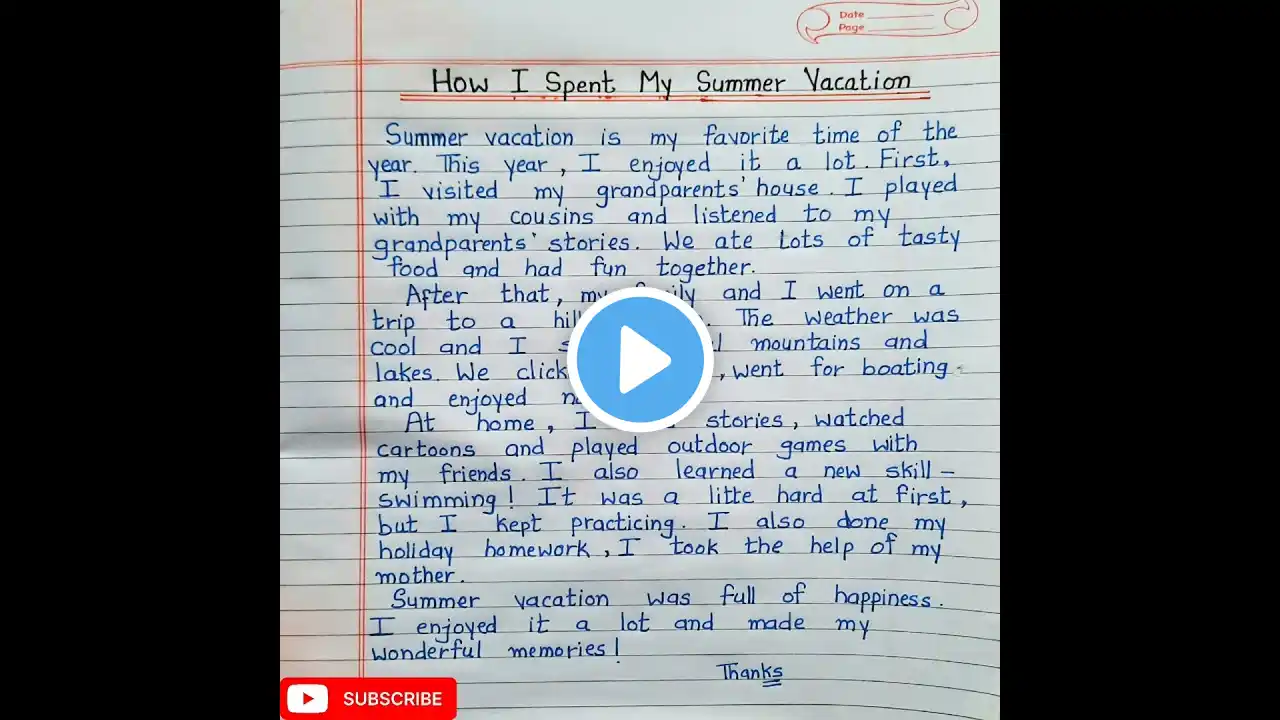 Date
Page
How I Spent My Summer Vacation
Summer vacation is my favorite time of the
year. This year, I enjoyed it a lot. First,
I visited my grandparents' house. I played
with my cousins and listened to my
grandparents' stories. We ate lots of tasty
food and had fun together.
After that, my family and I went on a
trip to a hill The weather was
cool and I mountains and
lakes. We click , went for boating
and enjoyed
At home, I stories, watched
cartoons and played outdoor games with
my friends. I also learned a new skill -
swimming! It was a litte hard at first,
but I kept practicing. I also done my
holiday homework, I took the help of my
mother.
Summer vacation was full of happiness.
I enjoyed it a lot and made my
wonderful memories!
Thanks
SUBSCRIBE